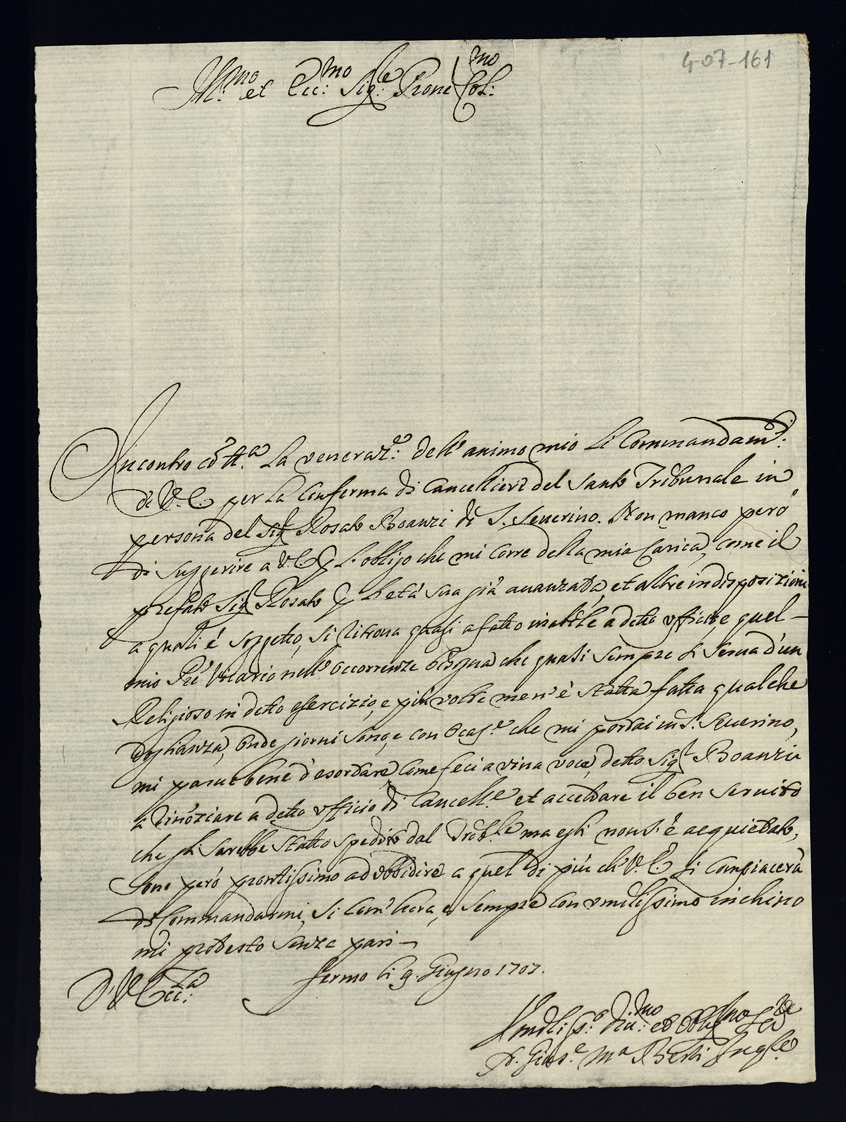 4-07-161
Ill.mo et Ecc:mo Sig:re Prone Col:mo
Incontro cõ tt.a la veneraz.e dell'animo mio li Commandam.ti
di V. E. per la conferma di Cancelliere del Santo Tribunale in
persona del Sig.r Rosato Boanzi di S. Severino. Non manco però
di suggerire a V. E. p l'obligo che mi corre della mia Carica, come il
prefato Sig.r Rosato p l'età sua già avanzata, et altre indisposizioni
a quali è soggetto, si ritrova quasi a fatto inabile a detto ufficio e quel
mio Vicario nell'occorrenze bisogna che quasi sempre si serva d'un
Religioso in detto esercizio, e più volte men'è stata fatta qualche
doglianza, onde giorni sono, e con Ocas.e che mi portai in S. Severino,
mi parve bene d'esortare, come feci a viva voce, detto Sig.r Boanzi
a rinõziare a detto ufficio di Cancell.e et accettare il ben servito
che gli sarebbe stato spedito dal Trib.le ma egli non s'è acquietato,
sono però prontissimo ad obbidire a quel di più ch'V. E. si compiacerà
di Commandarmi, si com'hora, e sempre con umilissimo inchino
mi protesto senza pari
D. V. Ecc:za
fermo li 9. Giugno 1707.
Umiliss.o Div:mo et Obl.mo Ser.re
F. Gios.e M.a Berti Inq.re